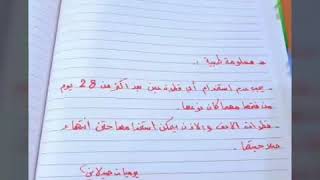 * معلومة طبية :
- يجب عدم استخدام أي قطرة عين بعد أكثر من 28 يوم
من فتحها مهما كان نوعها.
- قطرات الانف والاذن يمكن استخدامها حتى انتهاء
صلاحيتها.
يوميات صيدلاني